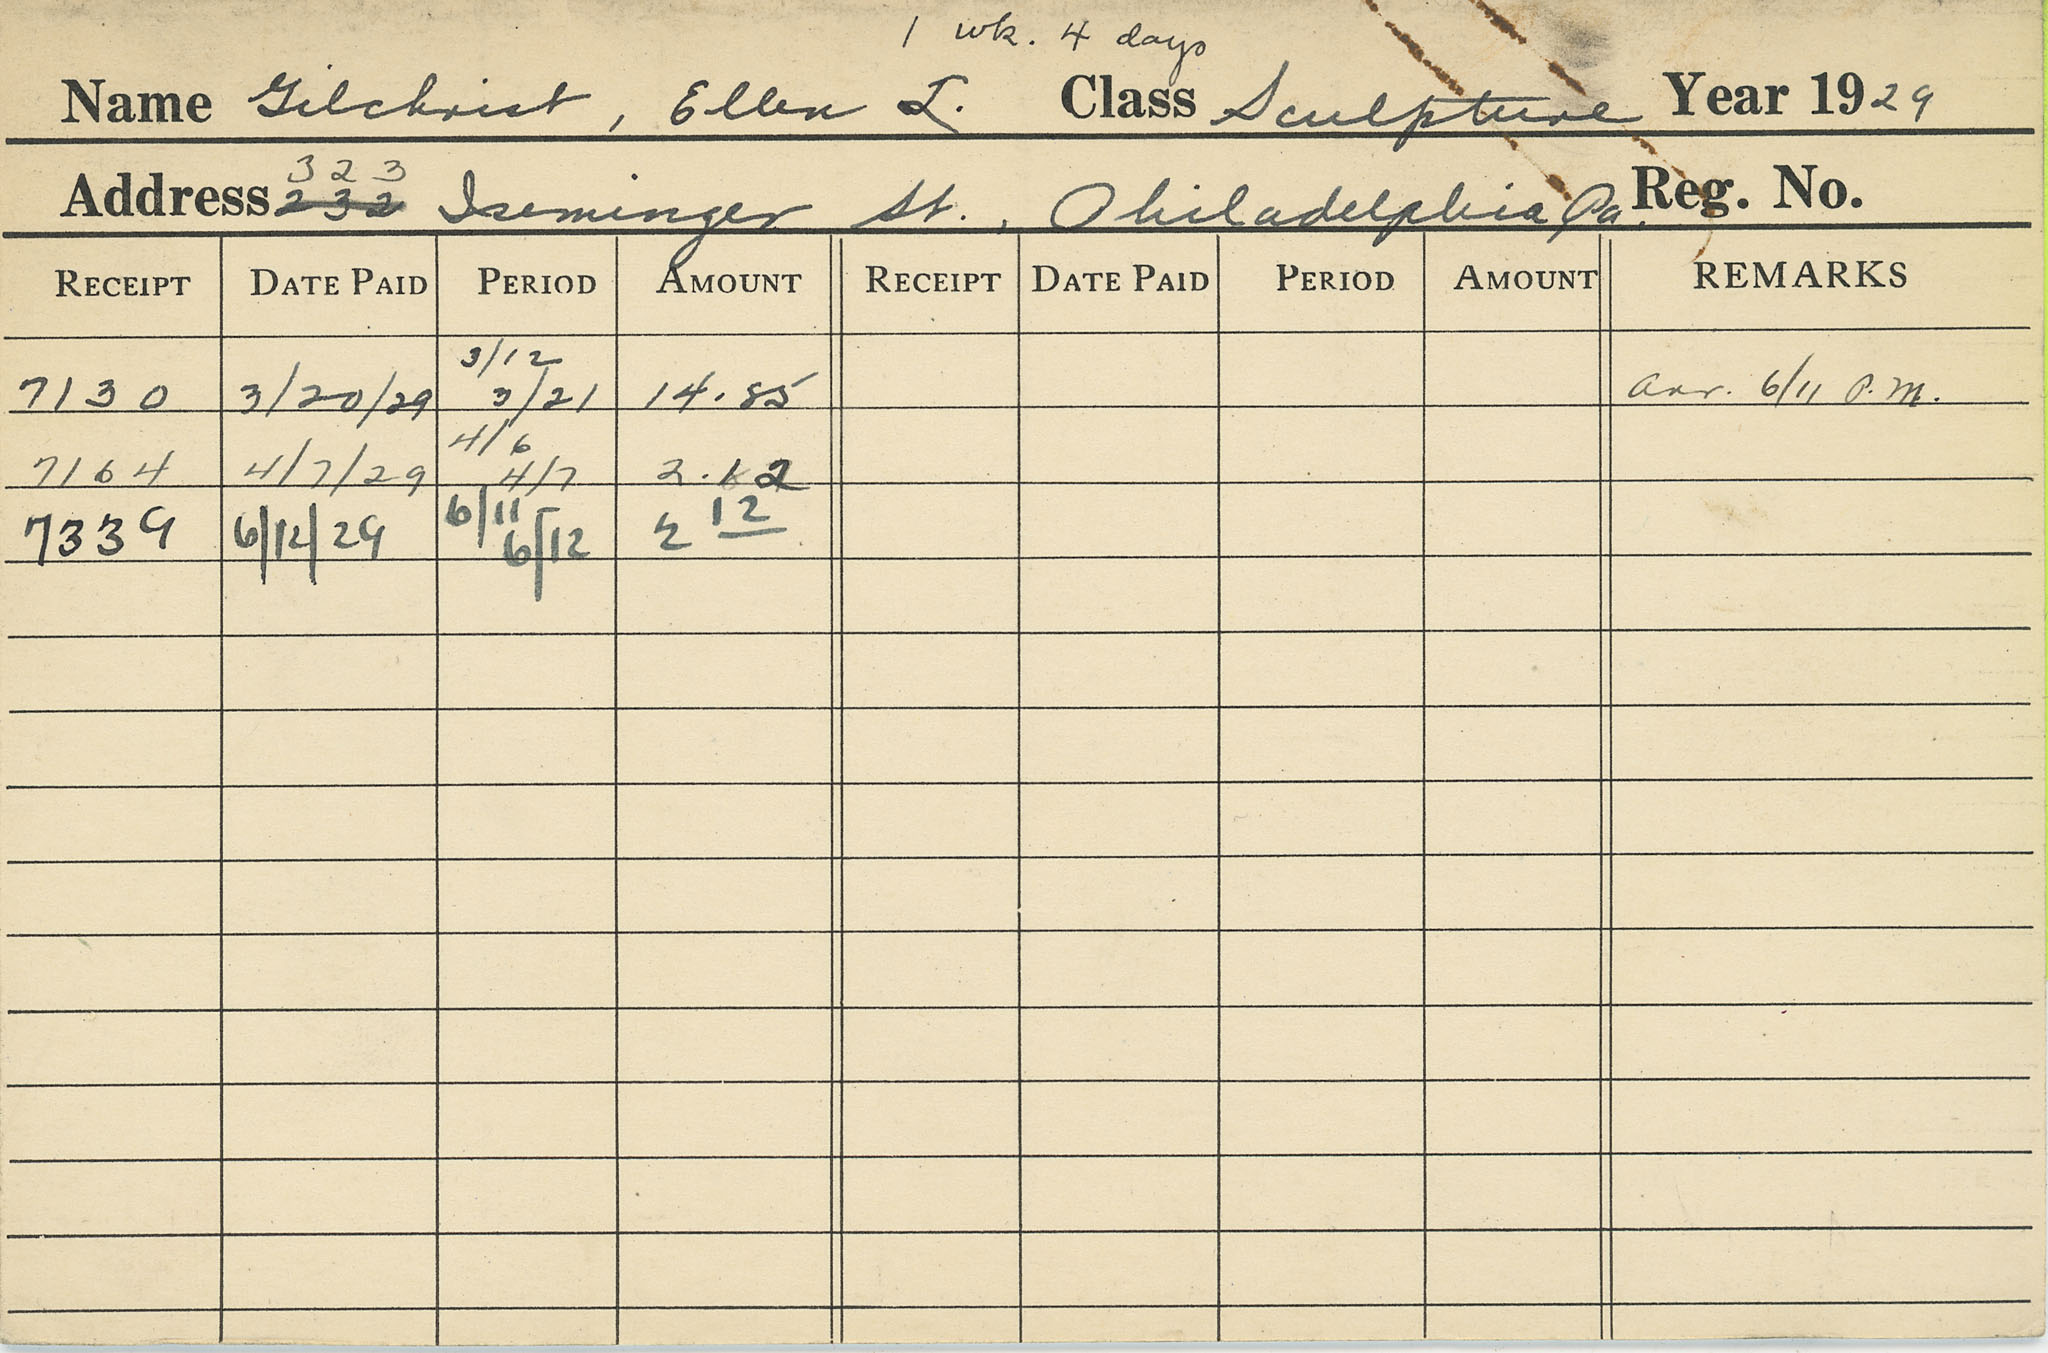 1 wk. 4 days
Name Gilchrist, Ellen I. Class Sculpture Year 1929
323
Address 232 Iseminger St., Philadelphia Pa. Reg. No.
RECEIPT DATE PAID PERIOD AMOUNT RECEIPT DATE PAID PERIOD AMOUNT REMARKS
3/12
7130 3/20/29 3/21 14.85 arr. 6/11 P.M.
4/6
7164 4/7/29 4/7 2.12
6/11
7339 6/12/29 6/12 2 12